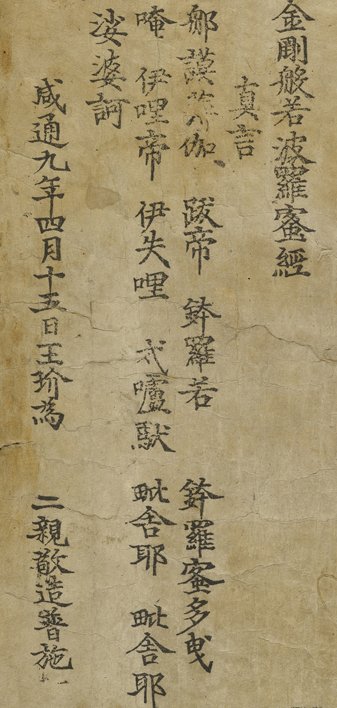 金剛般若波羅蜜經
真言
那謨薄伽 跋帝 鉢羅若 鉢羅蜜多曳
唵 伊哩帝 伊失哩 戍嚧馱 毗舍耶 毗舍耶
娑婆訶
咸通九年四月十五日王玠為 二親敬造普施